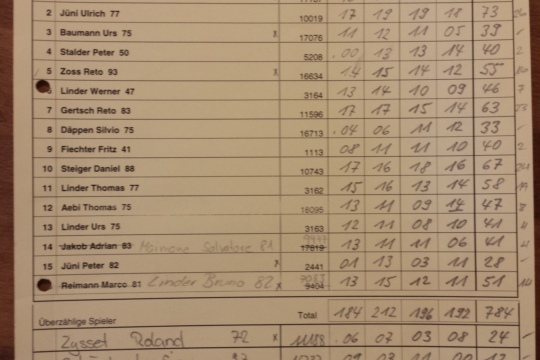 2 Jüni Ulrich 77 10019 17 19 19 18 73
3 Baumann Urs 75 x 17076 11 12 11 05 39 -
4 Stalder Peter 50 5208 00 13 13 14 40 2
5 Zoss Reto 93 x 16634 14 15 14 12 55
Linder Werner 47 3164 13 14 10 09 46 7
7 Gertsch Reto 83 11596 17 17 15 14 63
8 Däppen Silvio 75 16713 04 06 11 12 33 -
9 Flechter Fritz 41 1113 08 11 11 10 40 2
10 Steiger Daniel 88 10743 17 16 18 16 67
11 Linder Thomas 77 3162 15 16 13 14 58
12 Aebi Thomas 75 16095 13 11 09 14 47 8
13 Linder Urs 75 3163 12 11 08 10 41 4
14 Jakob Adrian 83 Mainone Salvatore 81 17819 13 11 11 06 41 4
15 Jüni Peter 82 x 2441 01 13 03 11 28 -
Reimann Marco 81 Linder Bruno 82 x 9404 13 15 12 11 51 14
Total 184 212 196 192 784
Überzählige Spieler
Zysset Roland 72 x 11188 06 07 03 08 24 -